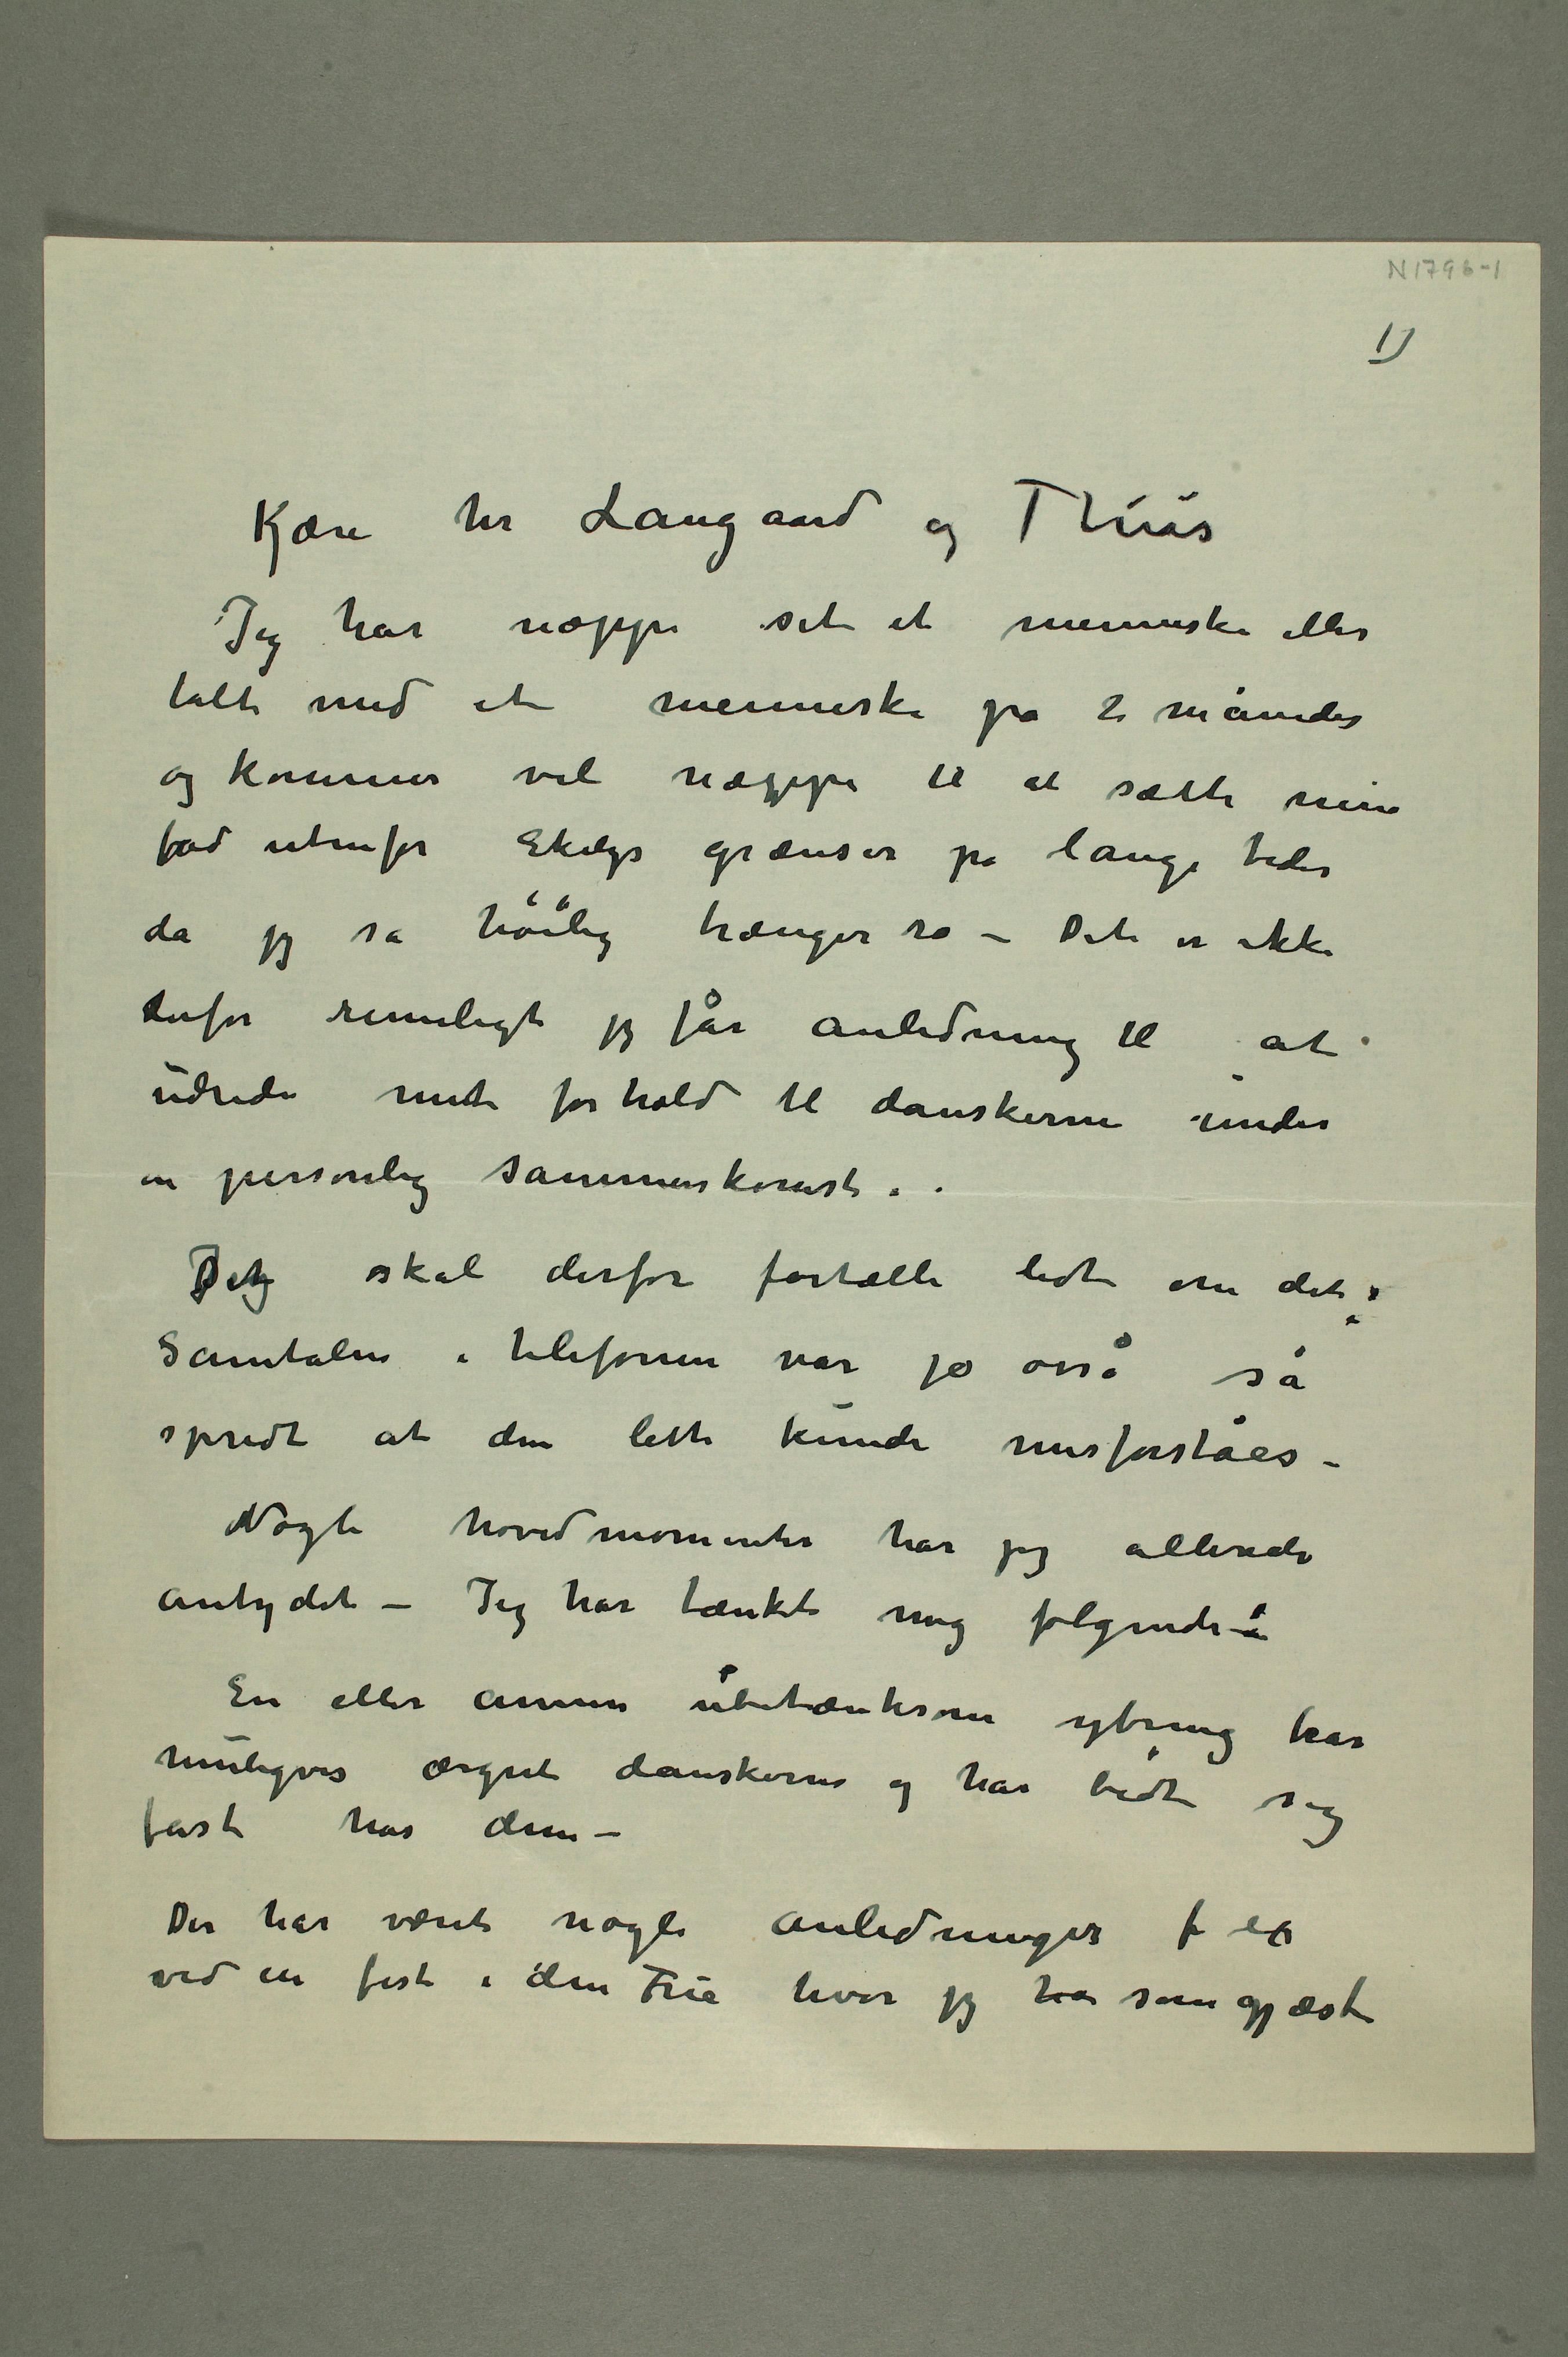 N1796-1
1)
Kjære hr Langaard og Thiis
Jeg har næppe set et menneske eller
talt med et menneske på 2 måneder
og kommer vel næppe til at sætte min
fod utenfor Ekelys grænser på lange tider
da jeg så høilig trænger ro – Det er ikke
derfor rimeligt jeg får anledning til at
udrede mit forhold til danskerne under
en personlig sammenkomst..
Jeg skal derfor fortælle lidt om det:
Samtalen i telefonen var jo også så
spredt at den lett kunde misforståes –
Nogle hovedmomenter har jeg allerede
antydet – Jeg har tænkt mig følgende:
En eller annen ubetænksom ytring har
muligvis ærgret danskerne og har bidt sig
fast hos dem –
Der har været nogle anledninger f ex
ved en fest i den Frie hvor jeg har som gjæst